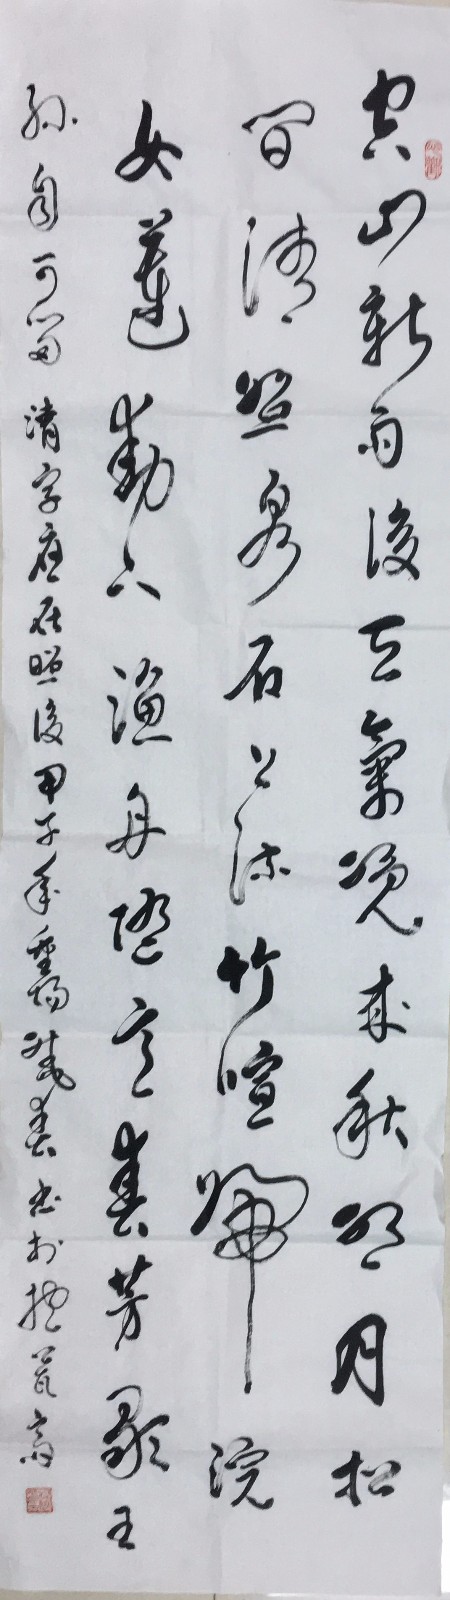 空山新雨後天氣晚來秋明月松
間清照泉石上流竹喧歸浣
女蓮動下漁舟隨意春芳歇王
孫自可留 清字應在照後 甲子年重陽 春書於 齋